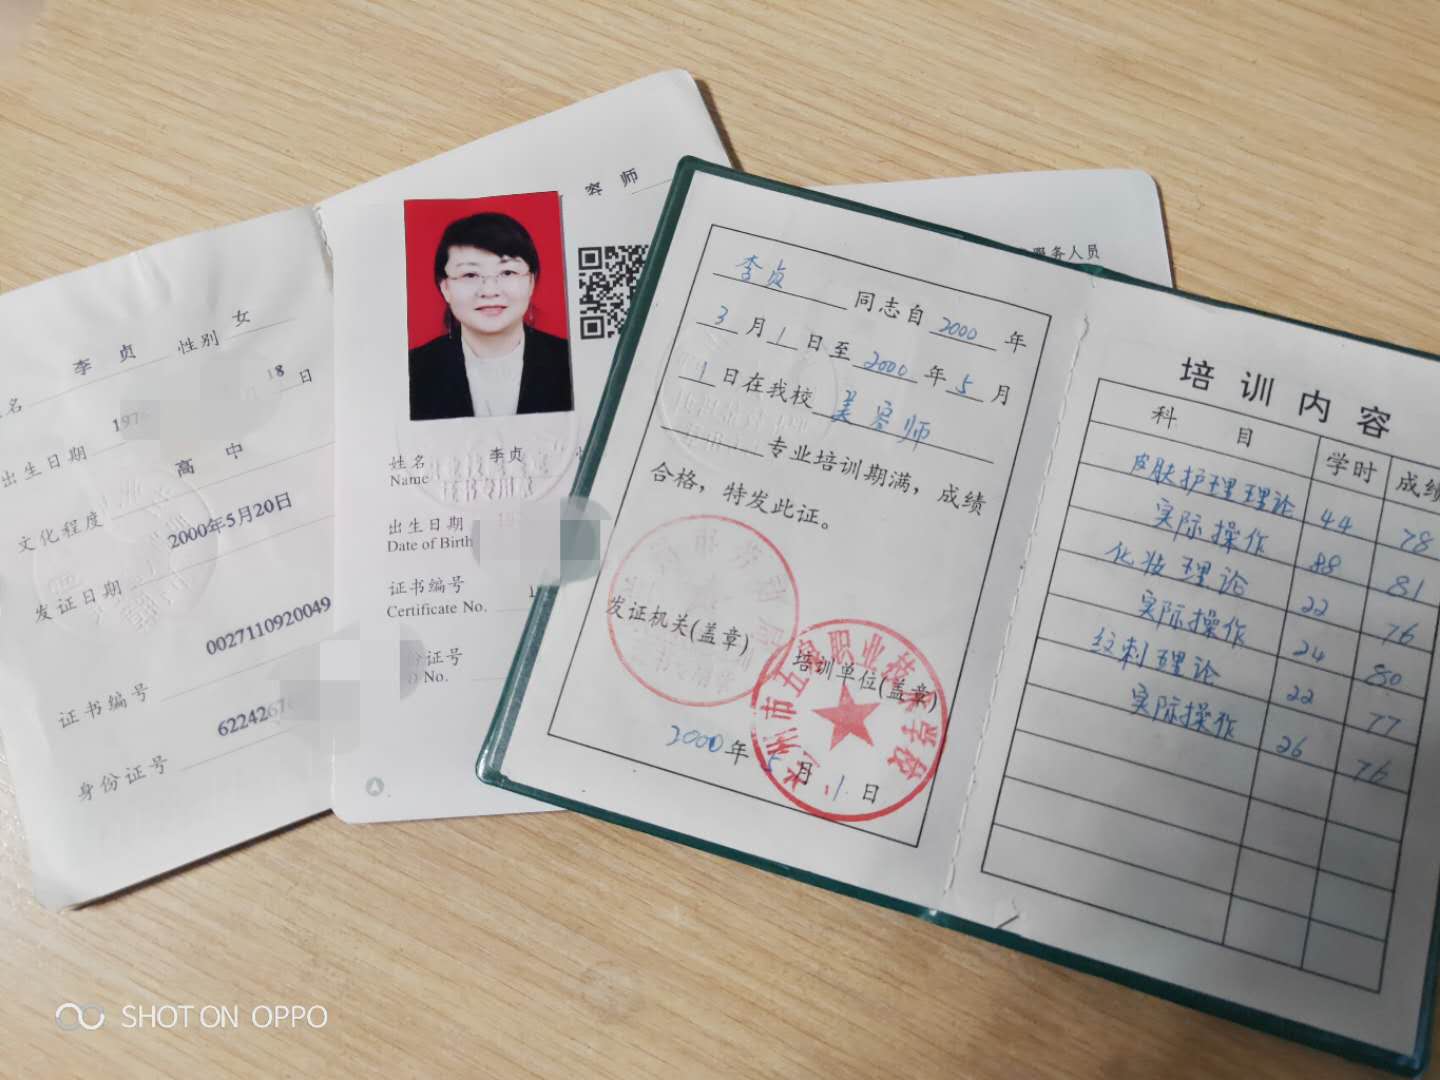 李贞 性别 女
出生日期 197 18 日
文化程度 高中
发证日期 2000年5月20日
证书编号 0027110920049
身份证号 62242
容师
姓名 李贞
Name
出生日期
Date of Birth
证书编号
Certificate No.
份证号
No.
服务人员
李贞 同志自 2000 年
3 月 1 日至 2000 年 5 月
1 日在我校 美容师
专业培训期满，成绩
合格，特发此证。
发证机关(盖章)
培训单位(盖章)
职业技术学校
2000 年 5 月 1 日
培训内容
科目 学时 成绩
皮肤护理理论 44 78
实际操作 88 81
化妆理论 22 76
实际操作 24 80
纹刺理论 22 77
实际操作 26 76
SHOT ON OPPO